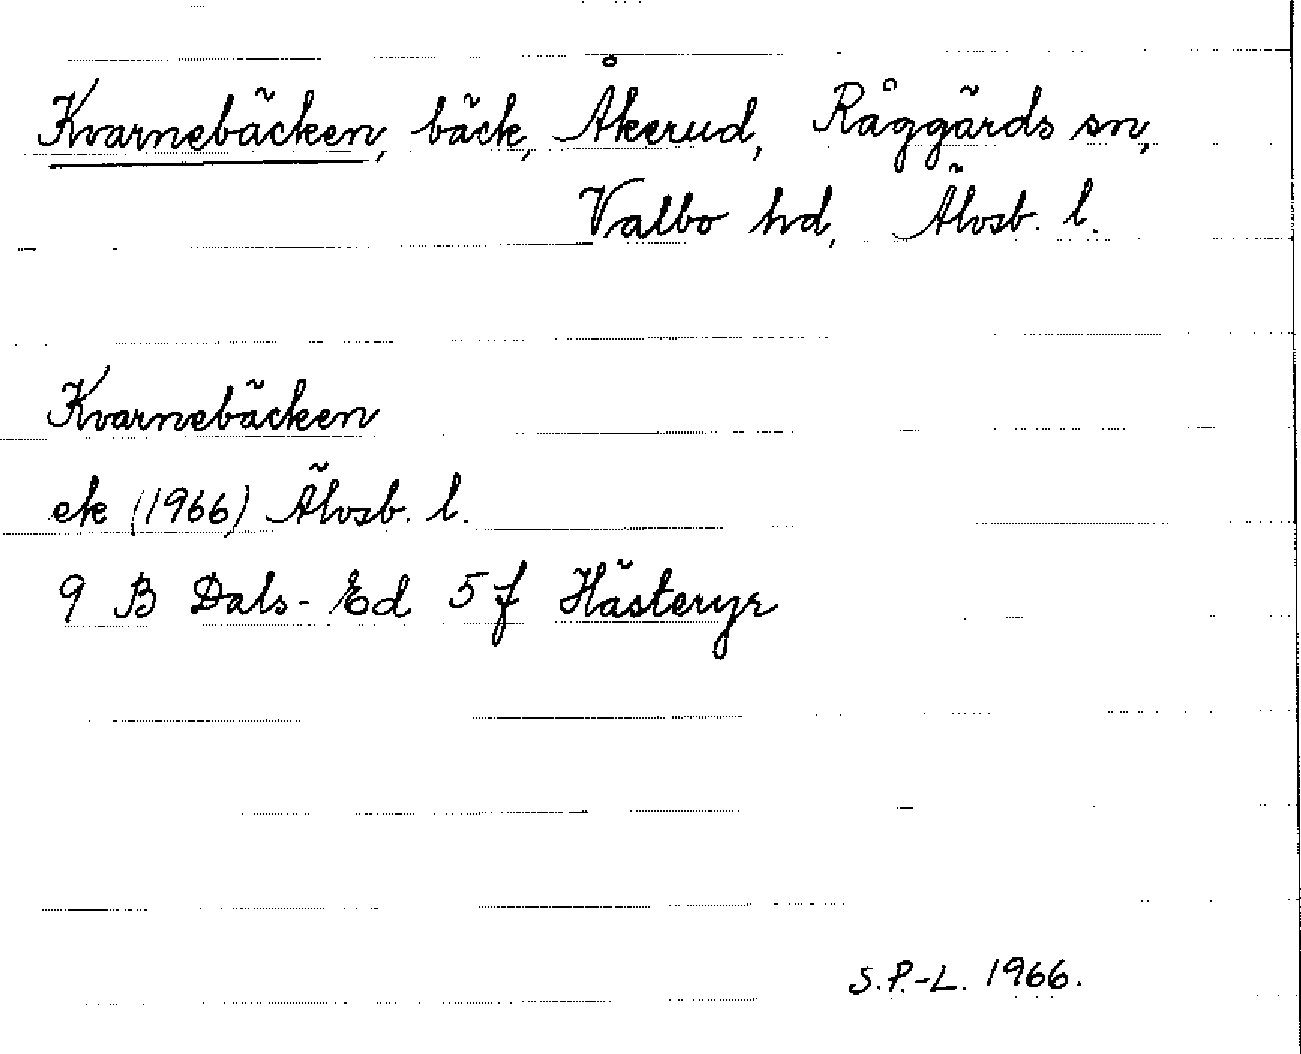 Kvarnebäcken, bäck, Åkerud, Råggärds sn,
Valbo hd, Älvsb. l.
Kvarnebäcken
ek (1966) Älvsb. l.
9 B Dals-Ed 5f Hästeryr
S.P.-L. 1966.